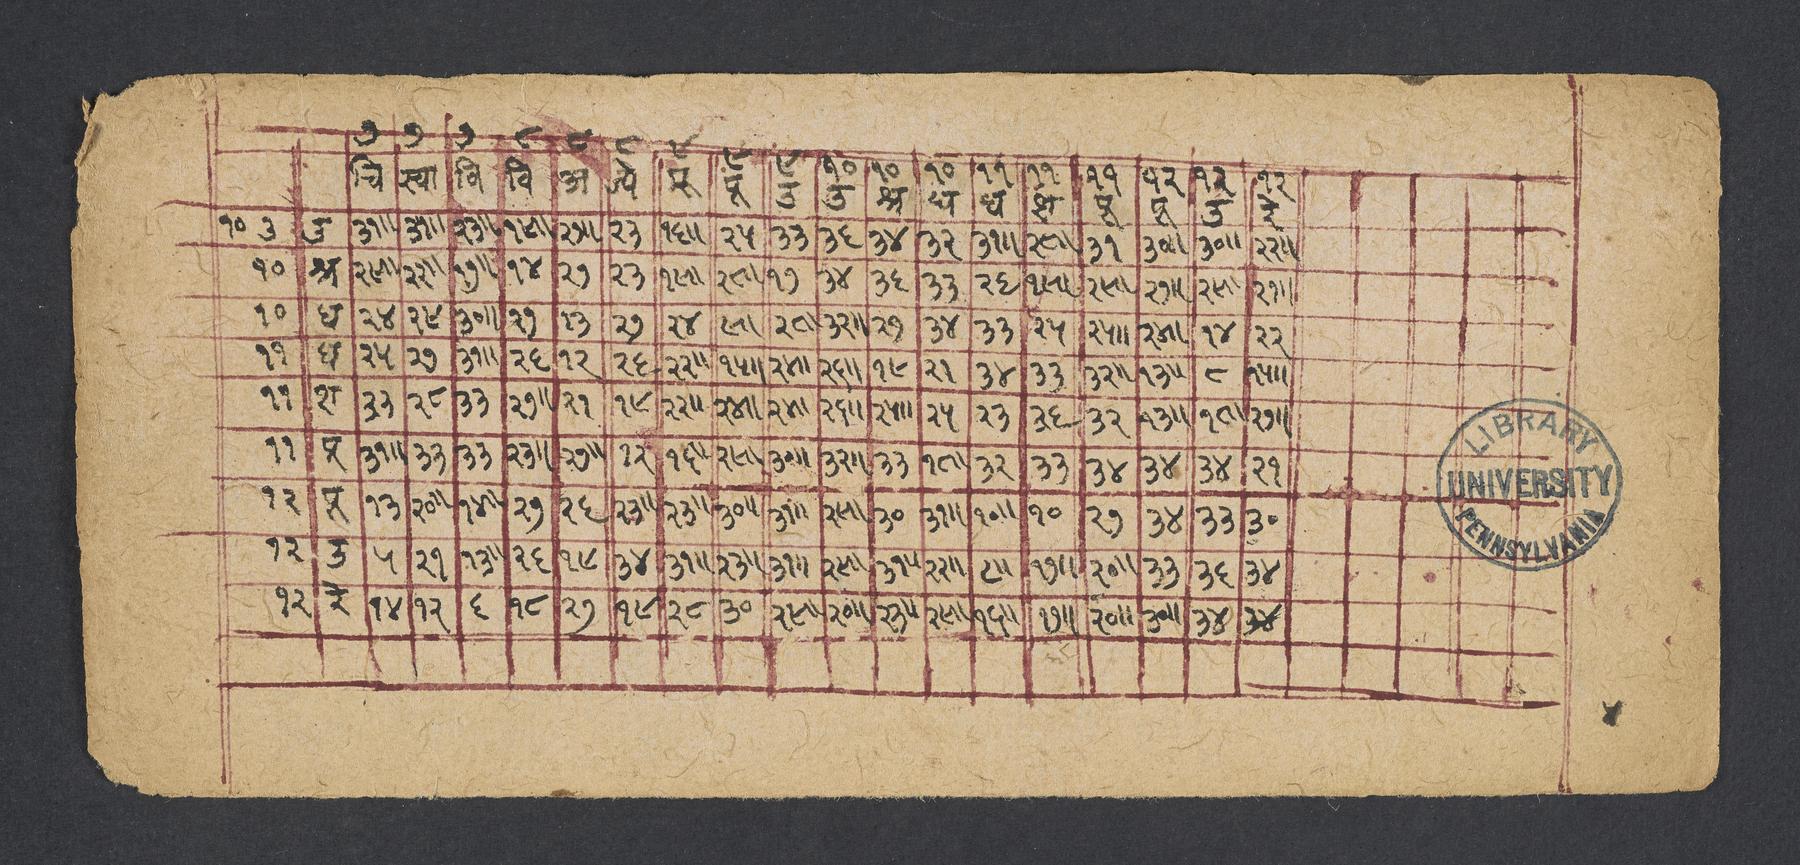 ७ ७ ७ ८ ८ ८ ९ ९ ९ १० १० १० ११ ११ ११ १२ १२ १२
चि स्वा वि वि अ ज्ये मू पू उ उ श्र ध ध श पू पू उ रे
१० उ उ ३१॥ ३१॥ २३॥ १८॥ २३ १६॥ २५ ३३ ३६ ३४ ३२ ३१॥ ३१ ३०॥ २२॥
१० श्र २२॥ १७॥ १४ २७ २३ १७ ३४ ३६ ३३ २६ २७॥ २१॥
१० ध २४ १९ ३०॥ २७ १३ २७ २४ ३२॥ २७ ३४ ३३ २५ २५॥ १४ २२
११ ध २५ २७ ३१॥ २६ १२ २६ २२॥ १५॥ २६॥ १९ २१ ३४ ३३ ३२॥ १३॥ ८ १५॥
११ श ३३ २८ ३३ २७॥ २१ १९ २२॥ २४॥ २६॥ २५॥ २५ २३ ३६ ३२ १३॥ २७॥
११ पू ३१॥ ३३ ३३ २३॥ २७॥ १२ १६॥ ३०॥ ३२॥ ३३ ३२ ३३ ३४ ३४ ३४ २१
१२ पू १३ २०॥ १४॥ २७ २६ २३॥ २३॥ ३०॥ ३१॥ ३० ३१॥ १०॥ १० २७ ३४ ३३ ३०
१२ उ ५ २१ १३॥ २६ १९ ३४ ३१॥ २३॥ ३१॥ ३१॥ २२॥ १७॥ २०॥ ३३ ३६ ३४
१२ रे १४ १२ ६ १८ २७ १९ २८ ३० २०॥ २३॥ १६॥ १७॥ २०॥ ३०॥ ३४ ३४
LIBRARY
UNIVERSITY
PENNSYLVANIA